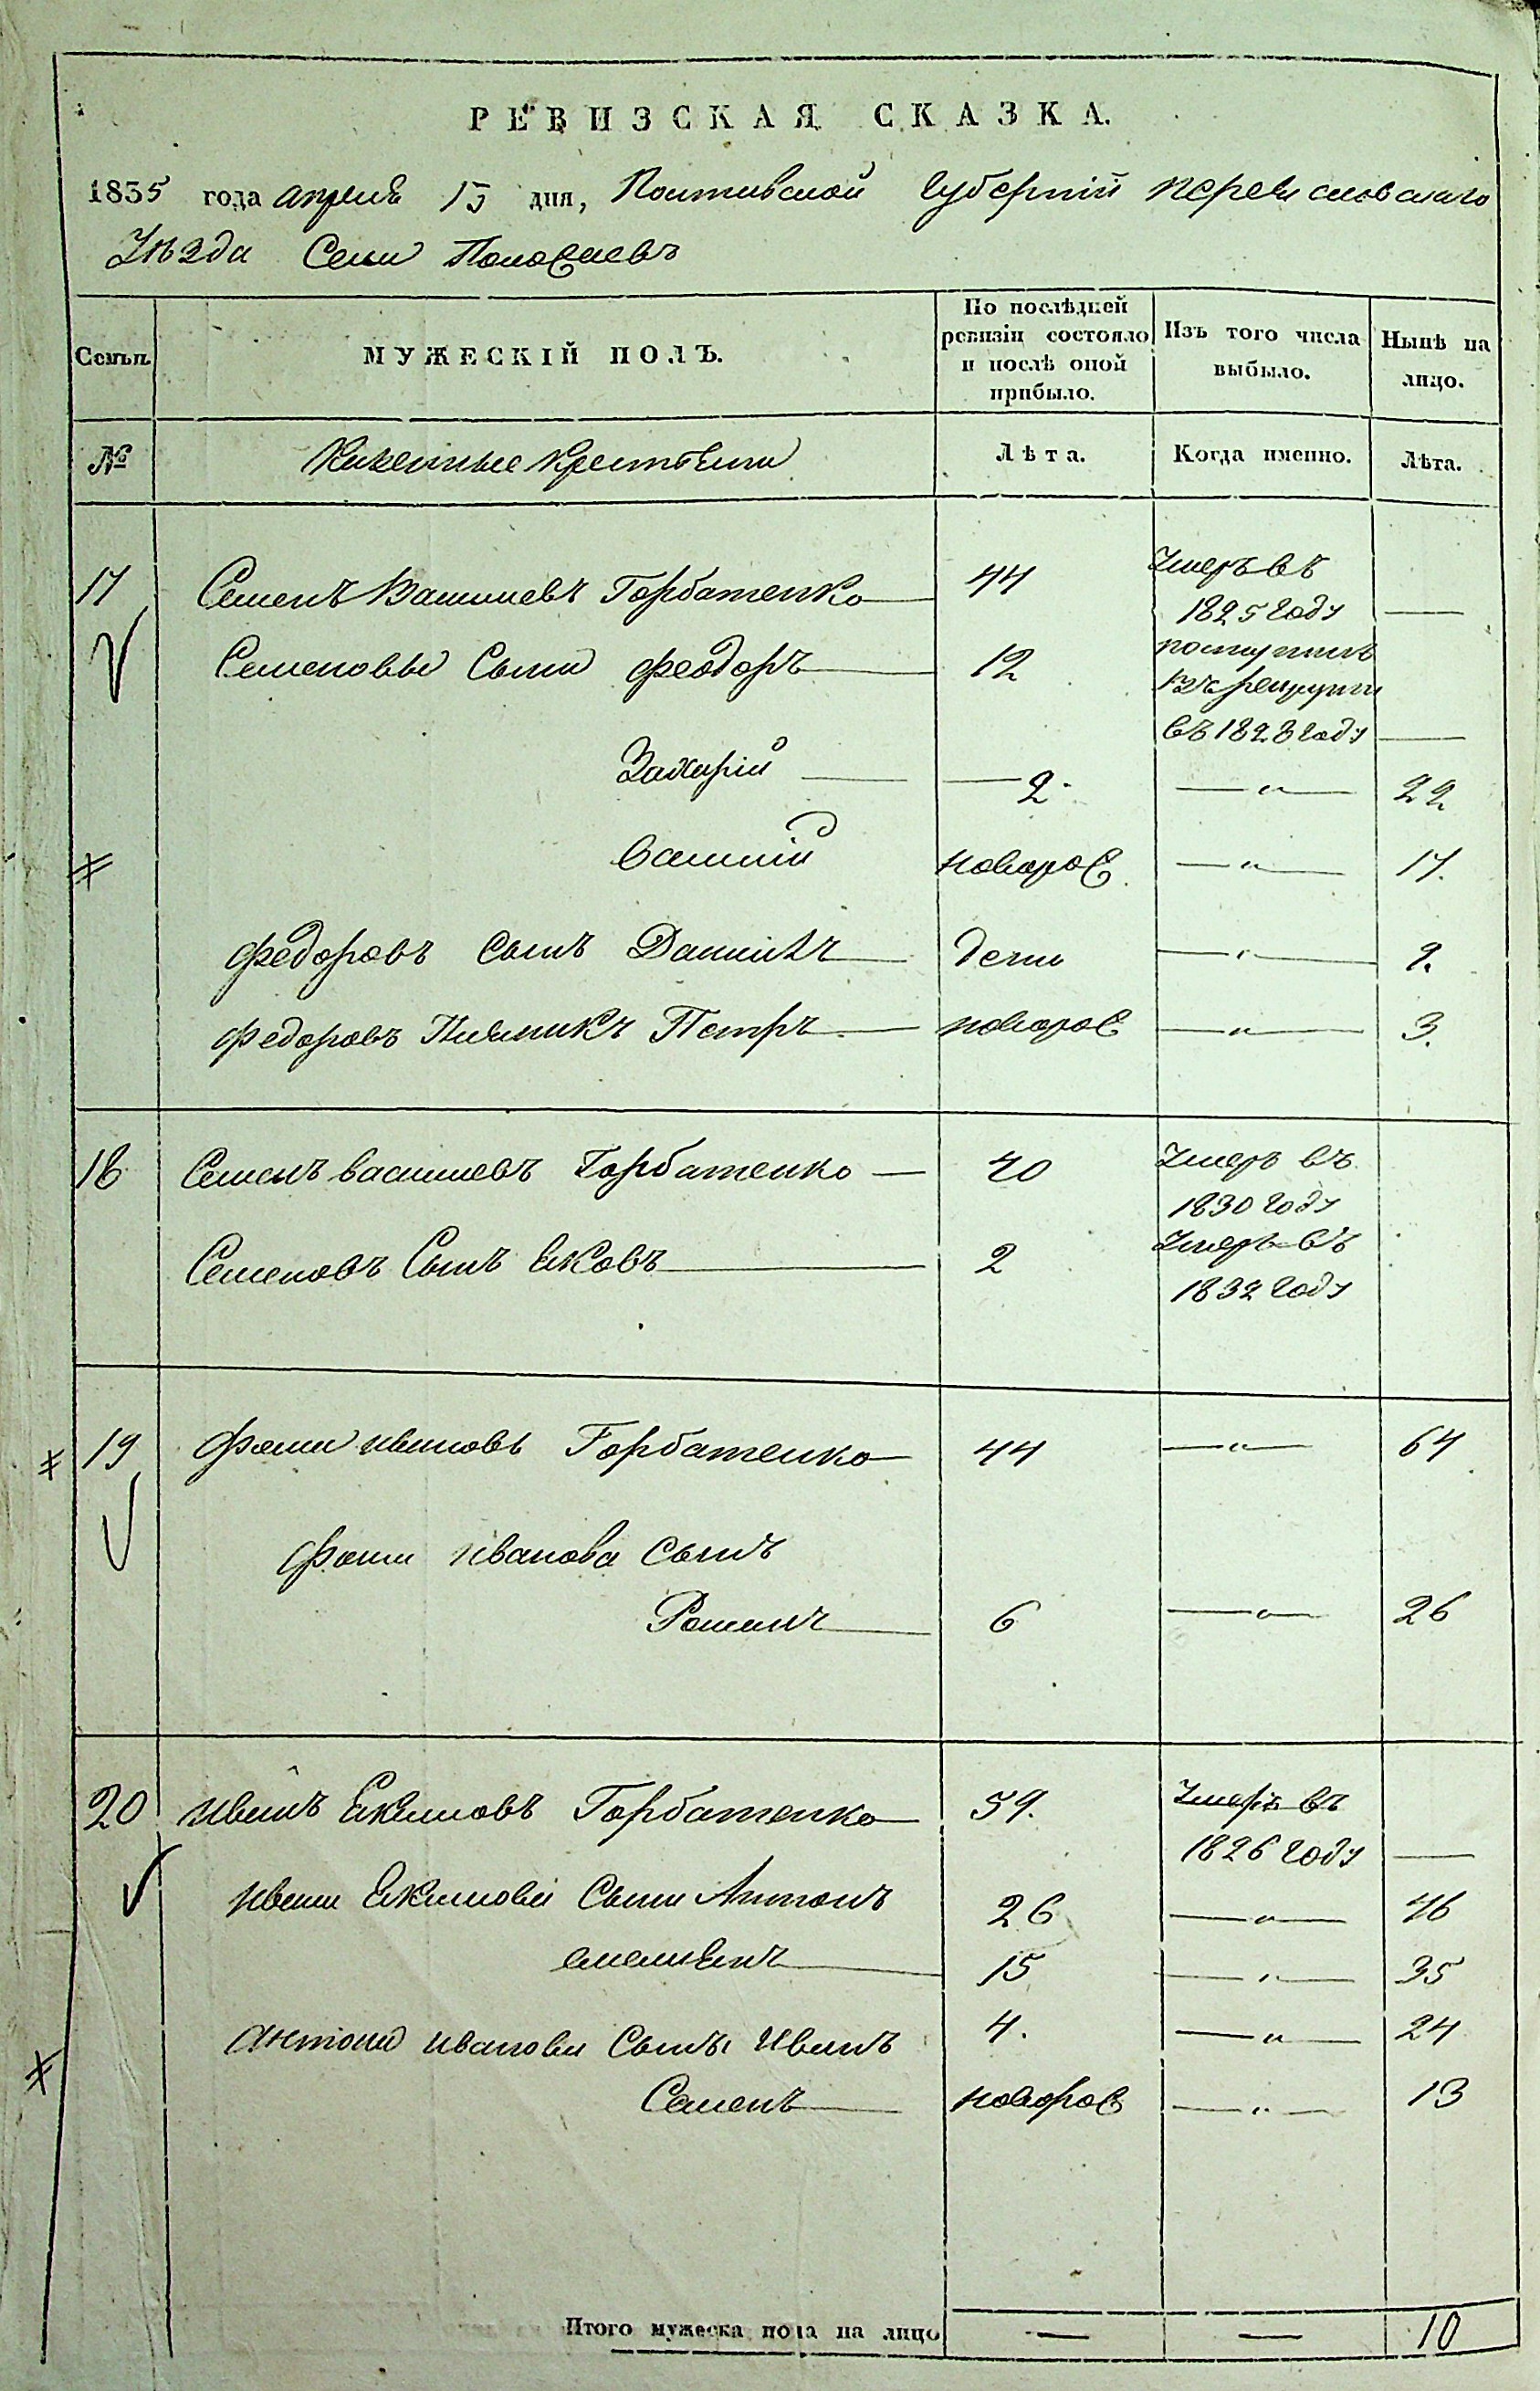 РЕВИЗСКАЯ СКАЗКА.
1835 года апреля 15 дня, Полтавской Губернїй переяславскаго
Уѣзда Села
Семьи.
МУЖЕСКІЙ ПОЛЪ.
По послѣдней ревизіи состояло и послѣ оной прибыло.
Изъ того числа выбыло.
Нынѣ на лицо.
№
Казенные крестьяни
Лѣта.
Когда именно.
Лѣта.
17 Семенъ Васильевъ Горбатенко 44 Умеръ въ
1825 году —
Семеновы Сыни феодоръ 12 поступилъ
въ рекруты
въ 1828 году —
Захарій — 2 — „ — 22
василій новорож — „ — 17.
федоровъ сынъ Даниилъ дети — „ — 9.
федоровъ Племникъ Петръ новорож — „ — 3.
18 Семенъ васильевъ Горбатенко — 40 Умеръ въ
1830 году
Семеновъ Сынъ Яковъ 2 Умеръ въ
1832 году
19 фома ивановъ Горбатенко 44 — „ — 64
фоми иванова сынъ
Романъ 6 — „ — 26
20 иванъ Екимовъ Горбатенко 59. Умеръ въ
1826 году —
ивана Екимова Сыни Антонъ 26 — „ — 46
емельянъ 15 — „ — 35
антона иванова Сыны Иванъ 4. — „ — 24
Семенъ новорож — „ — 13
Итого мужеска пола на лицо — — 10